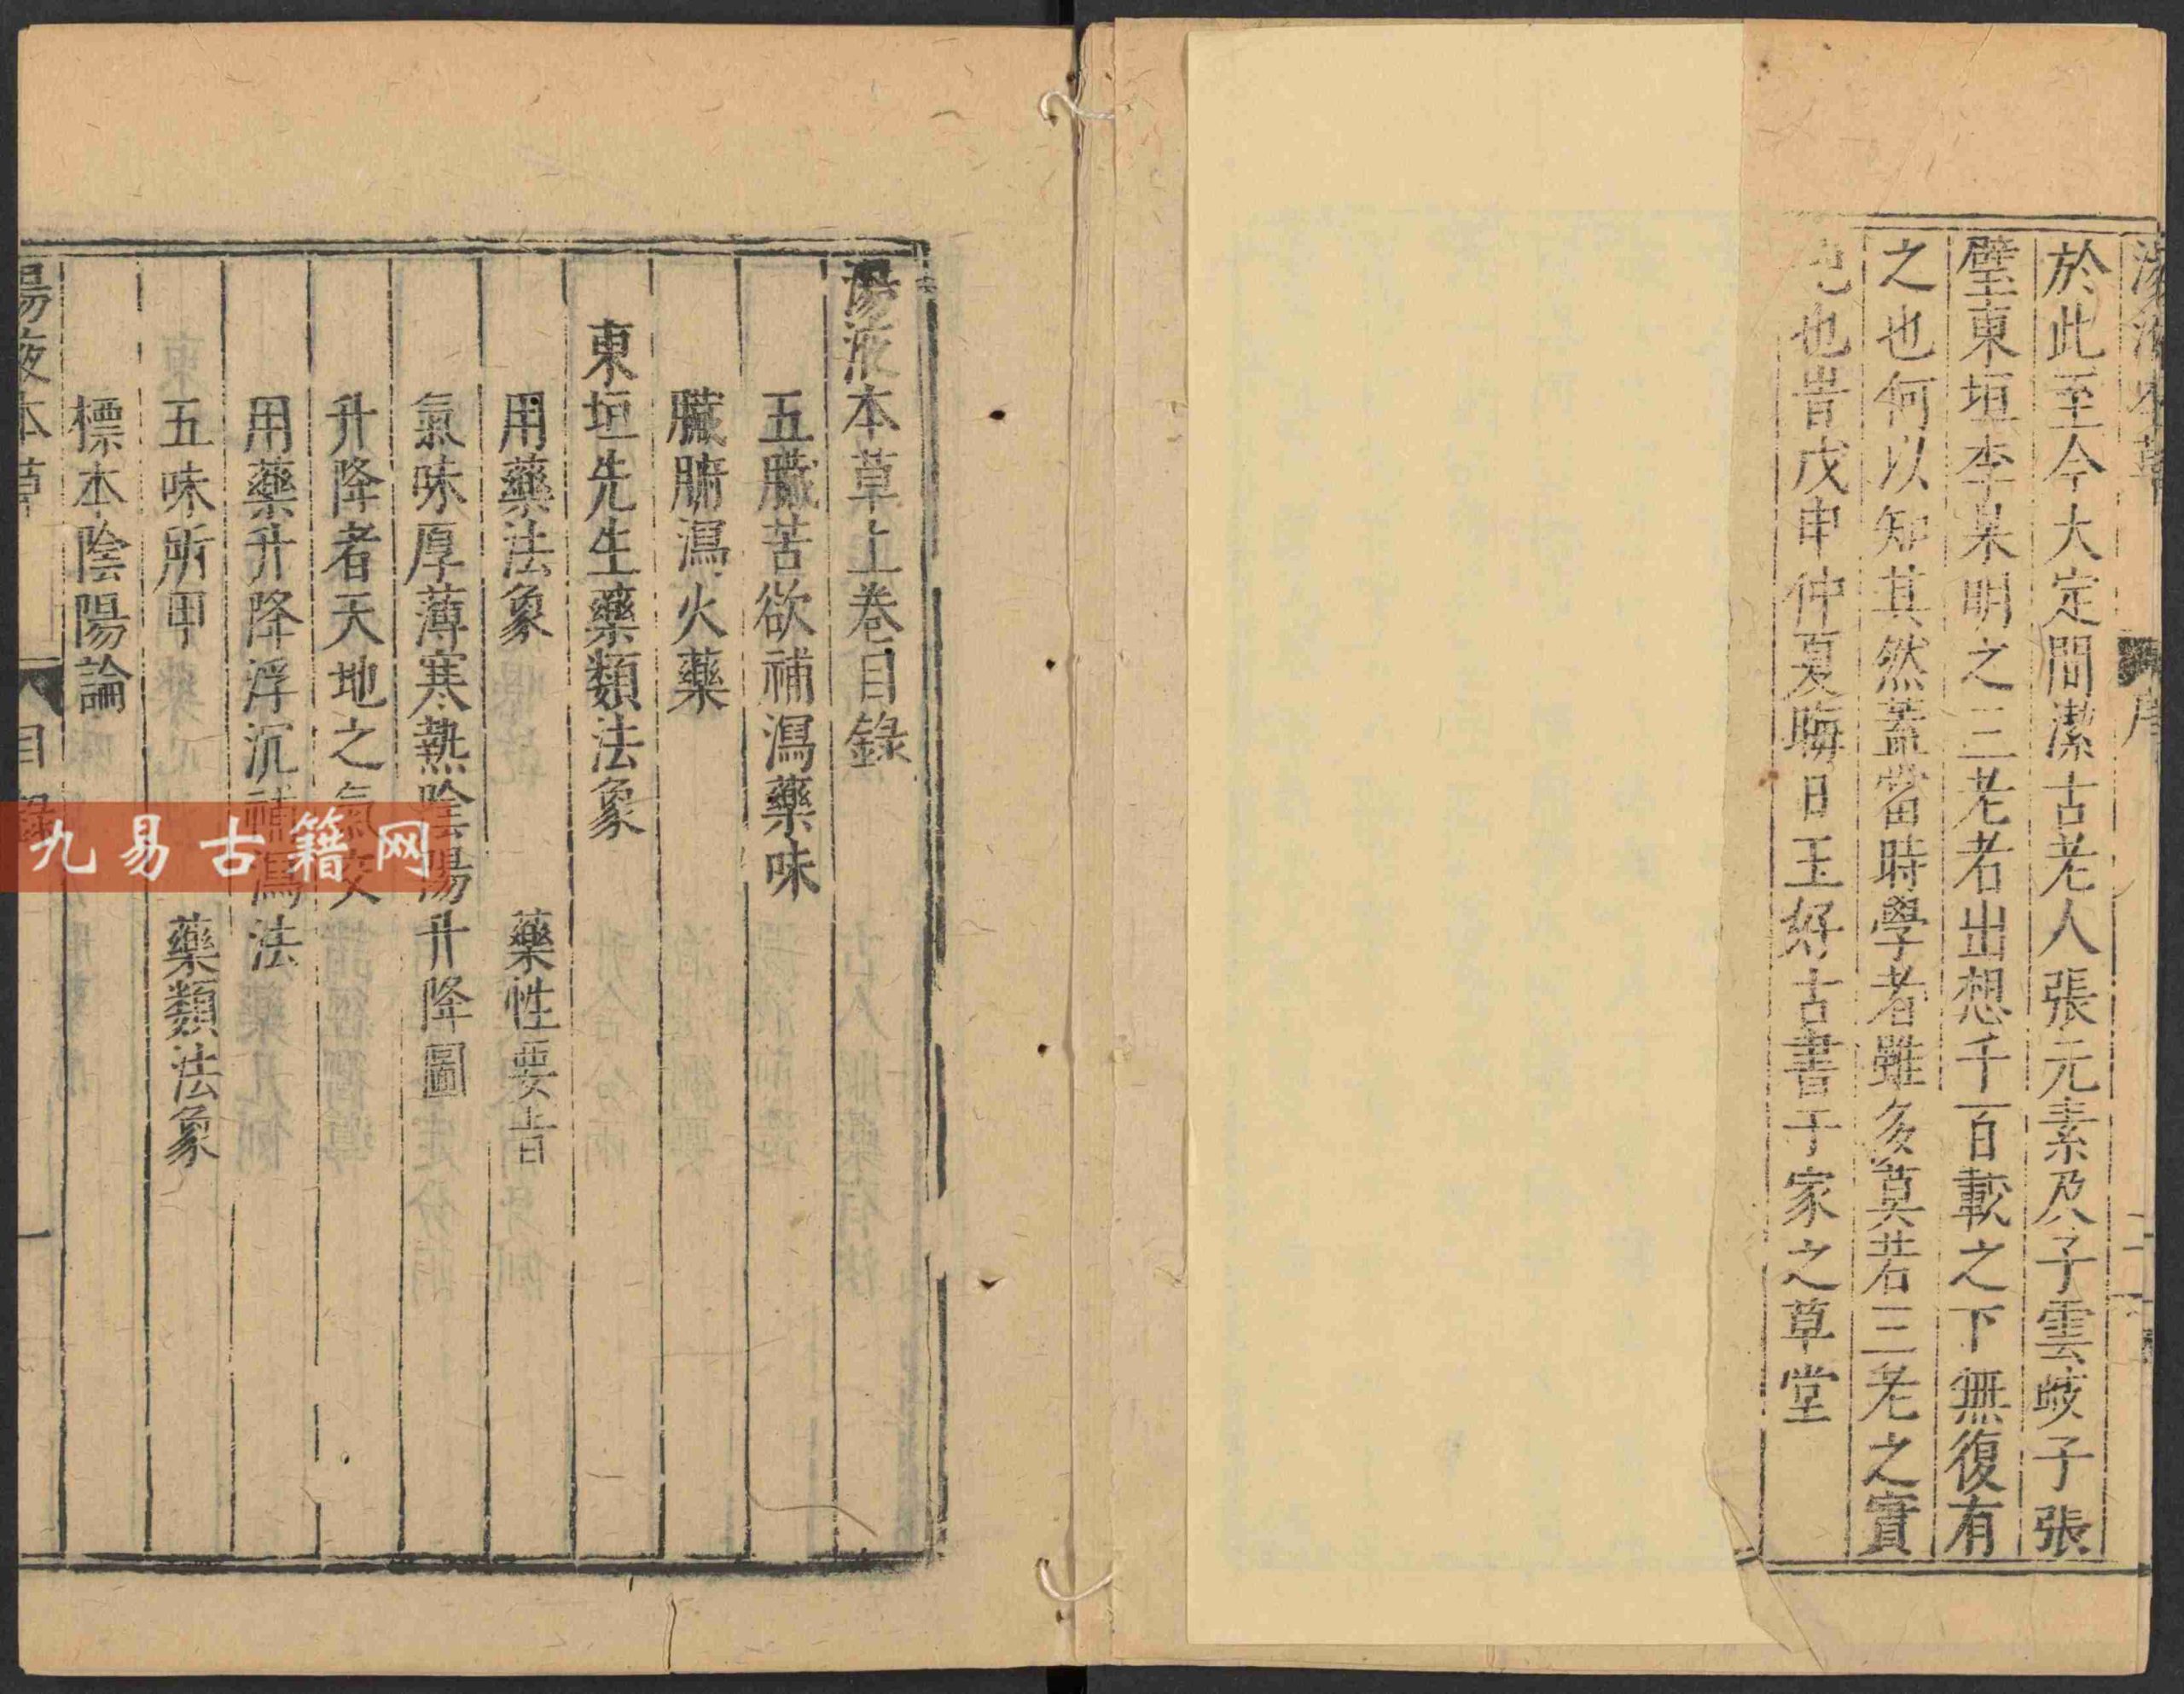 湯液本草
序
於此至今大定間潔古老人張元素及子雲岐子張
璧東垣李杲明之三老者出想千百載之下無復有
之也何以知其然蓋當時學者雖多莫若三老之實
也旹戊申仲夏晦日王好古書于家之草堂
湯液本草上卷目錄
五臟苦欲補瀉藥味
臟腑瀉火藥
東垣先生藥類法象
用藥法象 藥性要旨
氣味厚薄寒熱陰陽升降圖
升降者天地之氣交
用藥升降浮沉補瀉法
五味所用 藥類法象
標本陰陽論
湯液本草
目錄
一
九易古籍网